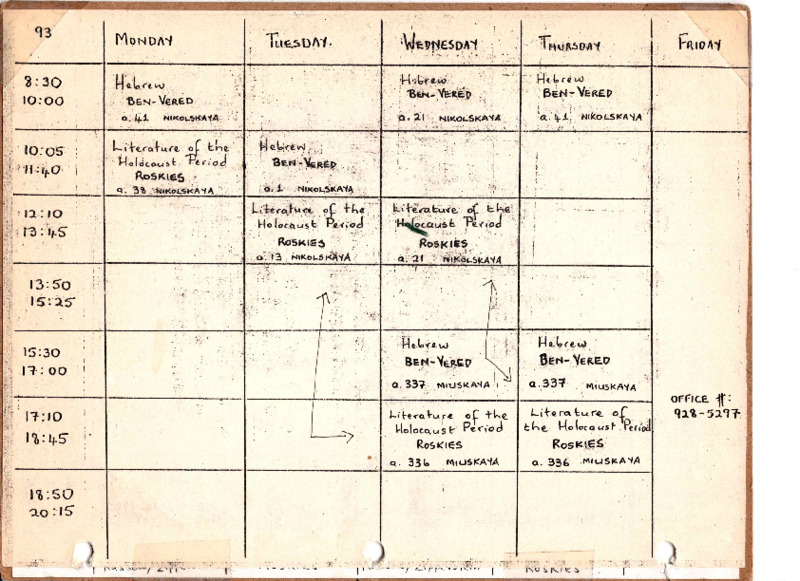 93
MONDAY
TUESDAY.
WEDNESDAY
THURSDAY
FRIDAY
8:30
10:00
Hebrew
BEN-VERED
a.41 NIKOLSKAYA
Hebrew
BEN-VERED
a.21 NIKOLSKAYA
Hebrew
BEN-VERED
a.41 NIKOLSKAYA
10:05
11:40
Literature of the
Holocaust Period
ROSKIES
a. 38 NIKOLSKAYA
Hebrew
BEN-VERED
a.1 NIKOLSKAYA
12:10
13:45
Literature of the
Holocaust Period
ROSKIES
a.13 NIKOLSKAYA
Literature of the
Holocaust Period
ROSKIES
a.21 NIKOLSKAYA
13:50
15:25
15:30
17:00
Hebrew
BEN-VERED
a.337 MIUSKAYA
Hebrew
BEN-VERED
a.337 MIUSKAYA
OFFICE #:
928-5297
17:10
18:45
Literature of the
Holocaust Period
ROSKIES
a. 336 MIUSKAYA
Literature of
the Holocaust Period
ROSKIES
a. 336 MIUSKAYA
18:50
20:15
ROSKIES